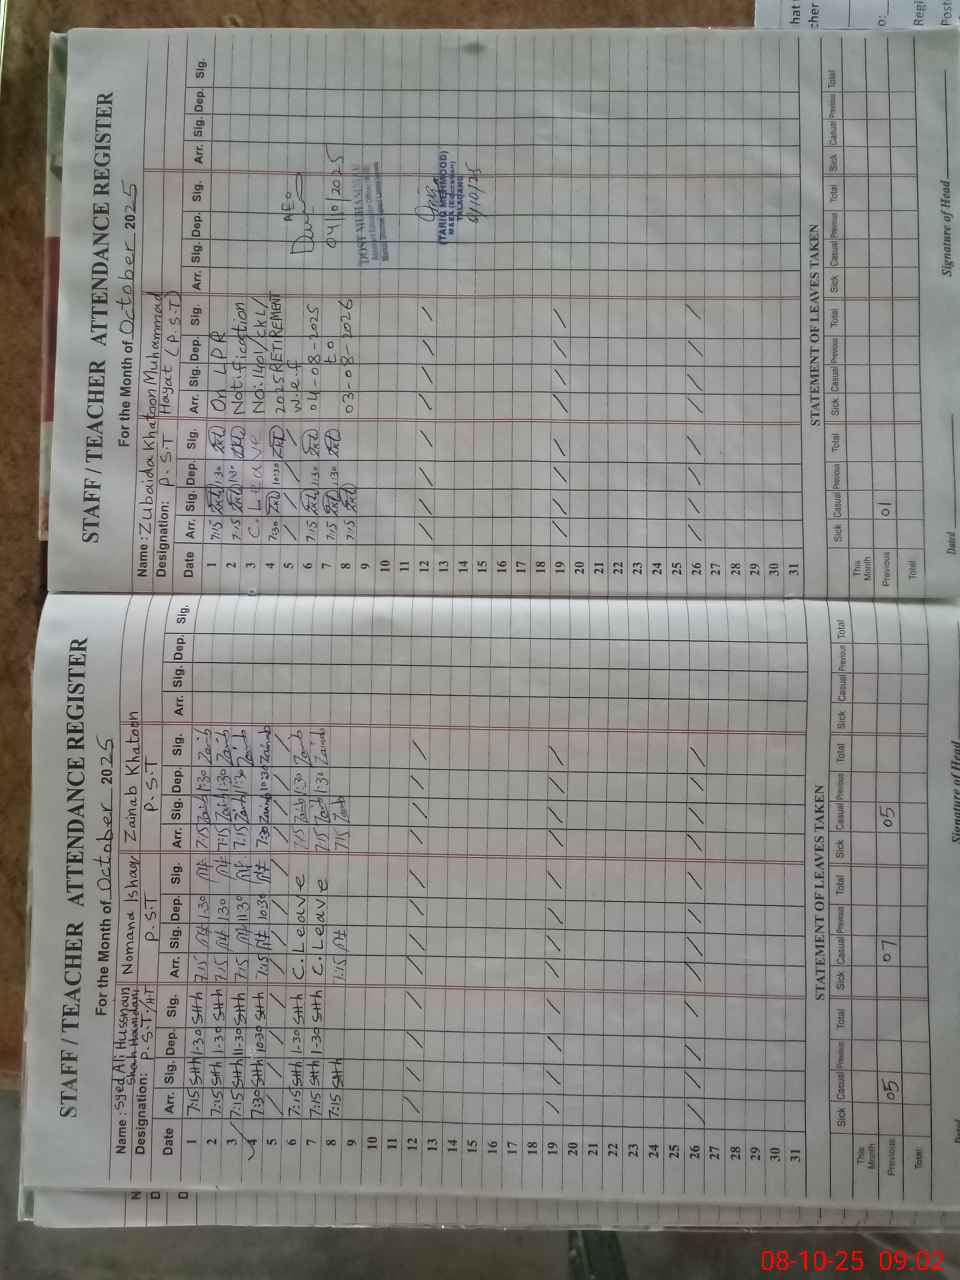 STAFF / TEACHER ATTENDANCE REGISTER
For the Month of October 2025
Name : Syed Ali Hussnain Shah Hamdani Nomana Ishaq Zainab Khatoon
Designation: P.S.T/HT P.S.T P.S.T
Date Arr. Sig. Dep. Sig. Arr. Sig. Dep. Sig. Arr. Sig. Dep. Sig. Arr. Sig. Dep. Sig.
1 7:15 SHh 1-30 SHh 7:15 1:30 7:15 Zainb 1:30 Zainb
2 7:15 SHh 1-30 SHh 7:15 1:30 7:15 Zainb 1:30 Zainb
3 7:15 SHh 11-30 SHh 7:15 11:30 7:15 Zainb 11:30 Zainb
4 7:30 SHh 10-30 SHh 7:15 10:30 7:30 Zainb 10:30 Zainb
5 / / / / / / / /
6 7:15 SHh 1-30 SHh C. Leave 7:15 Zainb 1:30 Zainb
7 7:15 SHh 1-30 SHh C. Leave 7:15 Zainb 1:30 Zainb
8 7:15 SHh 7:15 7:15 Zainb
9
10
11
12 / / / / / / / / / / / /
13
14
15
16
17
18
19 / / / / / / / / / / / /
20
21
22
23
24
25
26 / / / / / / / / / / / /
27
28
29
30
31
STATEMENT OF LEAVES TAKEN
Sick Casual Previous Total Sick Casual Previous Total Sick Casual Previous Total Sick Casual Previous Total
This Month
Previous 05 07 05
Total
Signature of Head
STAFF / TEACHER ATTENDANCE REGISTER
For the Month of October 2025
Name : Zubaida Khatoon Muhammad Hayat (P.S.T)
Designation: P.S.T
Date Arr. Sig. Dep. Sig. Arr. Sig. Dep. Sig. Arr. Sig. Dep. Sig. Arr. Sig. Dep. Sig.
1 7:15 1:30 On LPR
2 7:15 1:30 Notification
3 C. Leave No: 1401/CKL/
4 7:30 10:30 2025 RETIREMENT
5 / / / / w.e.f
6 7:15 1:30 04-08-2025 AEO
7 7:15 1:30 to 04/10/2025
8 7:15 03-08-2026
9 DOST MUHAMMAD
10
11
12 / / / / / / / /
13 (TARIQ MEHMOOD)
MAEA (EDUCATION)
14 TALAGANG
15
16
17
18
19 / / / / / / / /
20
21
22
23
24
25
26 / / / / / / / /
27
28
29
30
31
STATEMENT OF LEAVES TAKEN
Sick Casual Previous Total Sick Casual Previous Total Sick Casual Previous Total Sick Casual Previous Total
This Month
Previous 01
Total
Dated Signature of Head
08-10-25 09:02